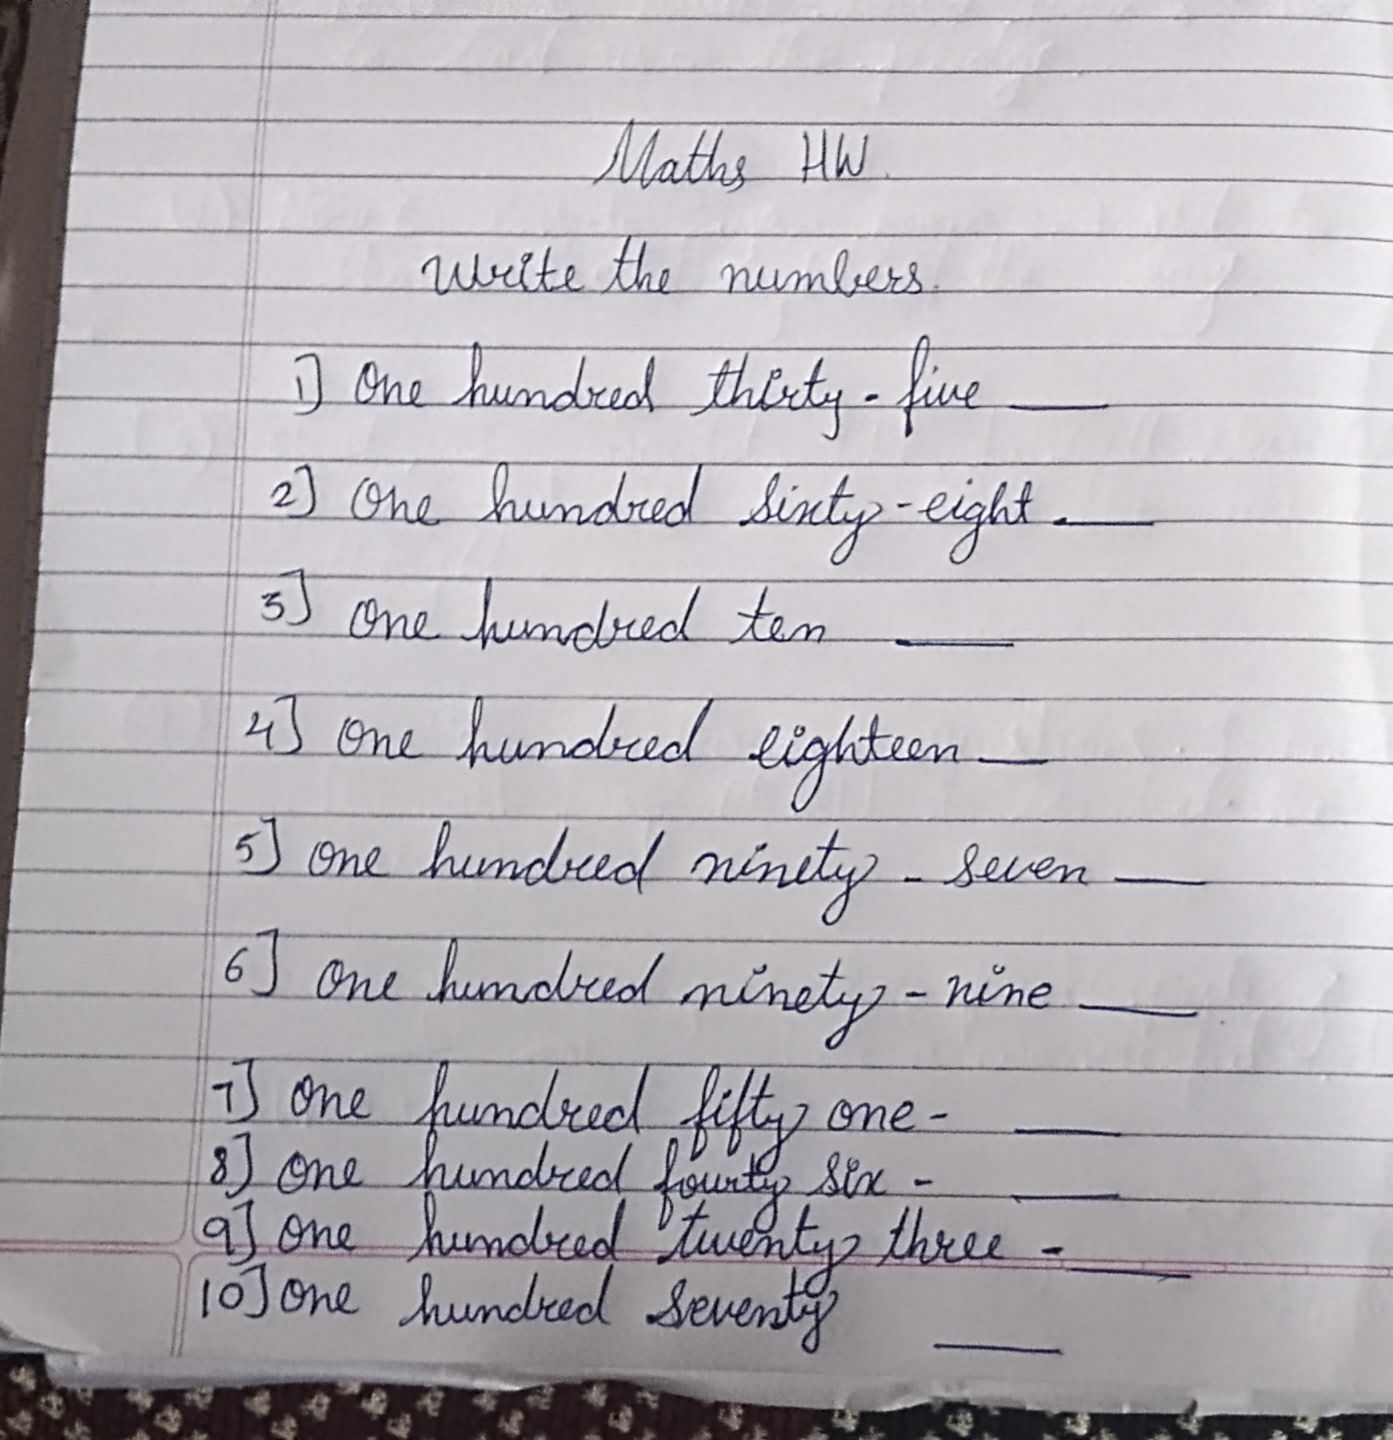 Maths HW.
Write the numbers.
1] One hundred thirty-five ___
2] One hundred sixty-eight ___
3] One hundred ten ___
4] One hundred eighteen ___
5] One hundred ninety-seven ___
6] One hundred ninety-nine ___
7] One hundred fifty one - ___
8] One hundred fourty six - ___
9] One hundred twenty three - ___
10] One hundred seventy ___